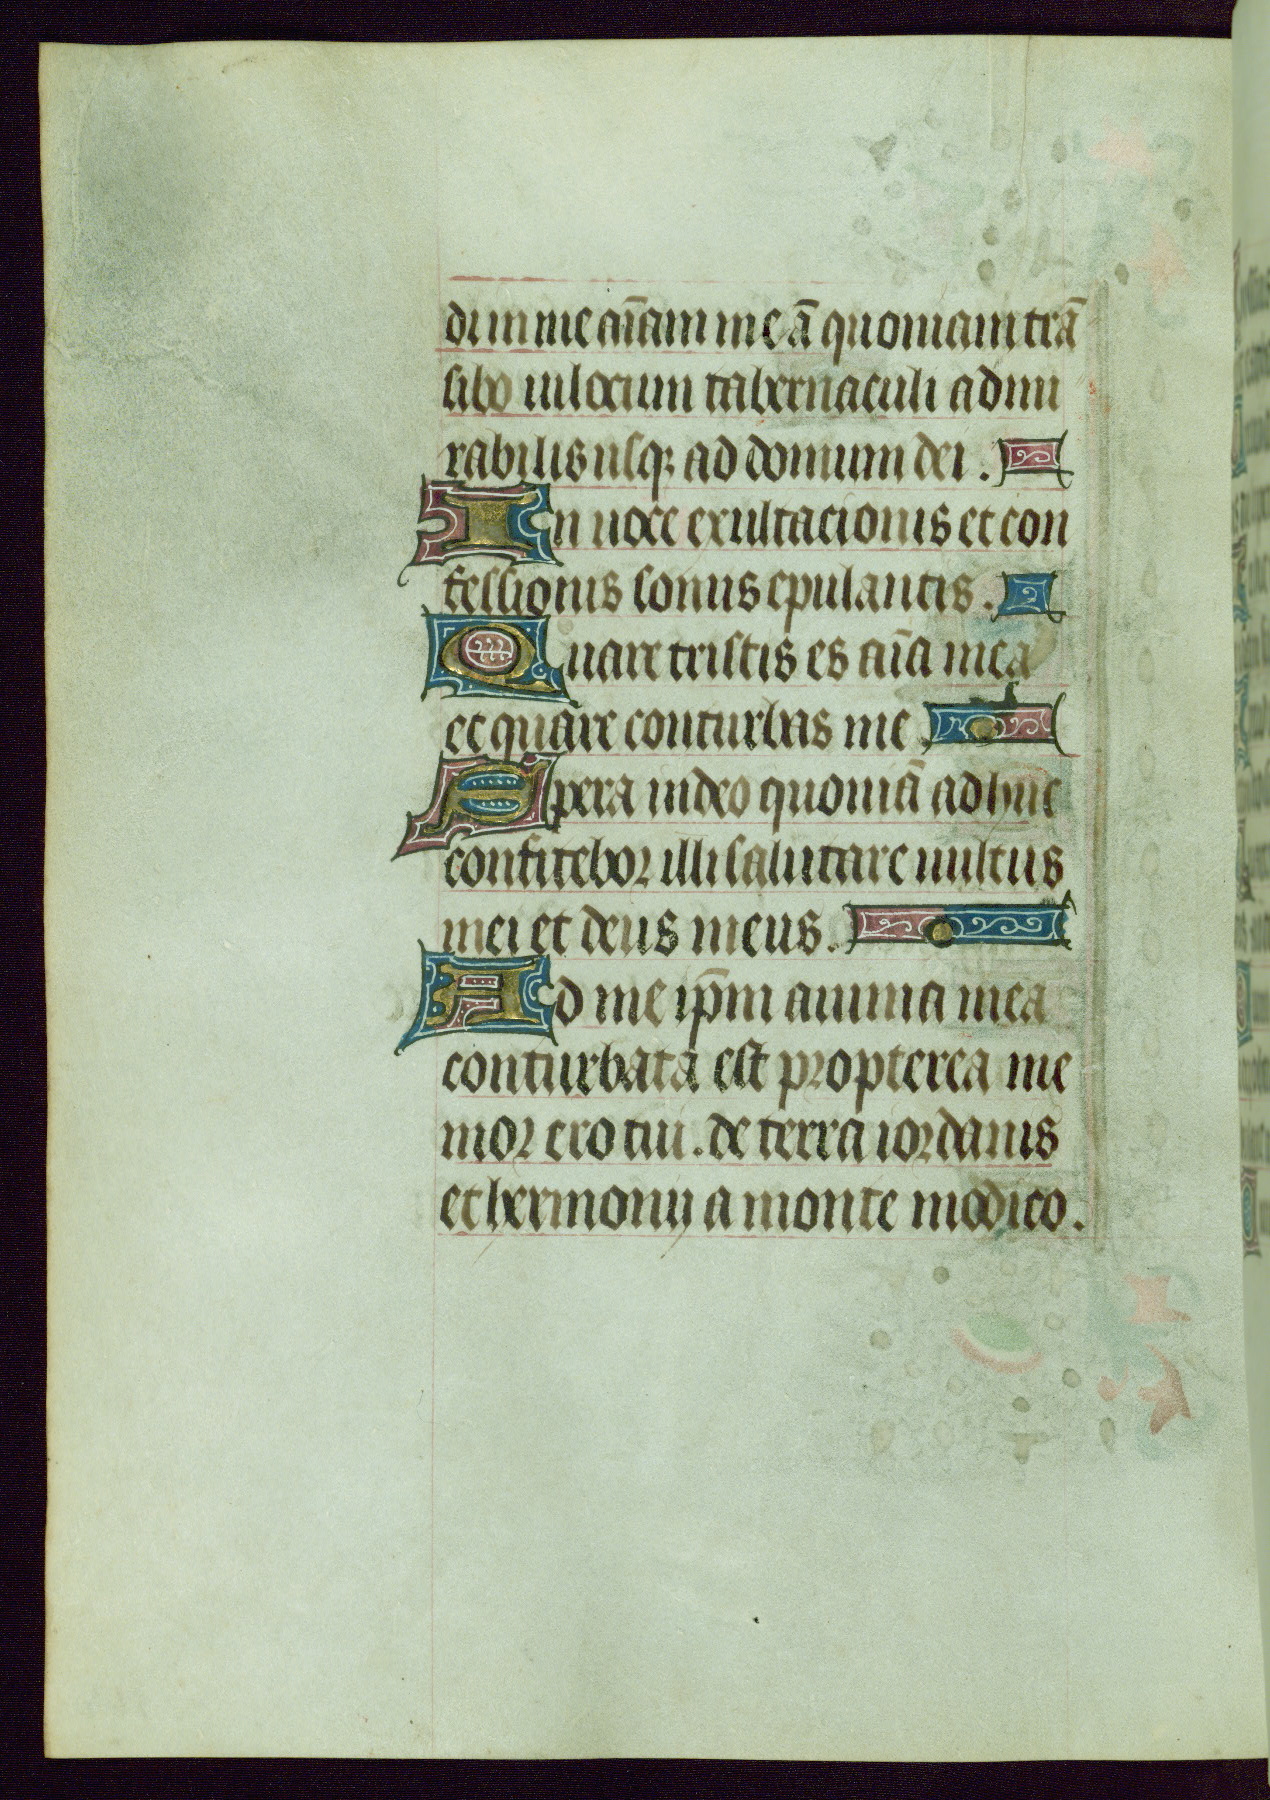 di in me aīam me ā quoniam trā
sibo in locum tabernaculi admi
rabilis usqꝫ ad domum dei .
In uoce exultacionis et con
fessionis sonus epulantis .
Quare tristis es aīa mea
et quare conturbas me .
Spera in deo quoniā adhuc
confitebor illi salutare uultus
mei et deus meus .
Ad me ip̄m anima mea
conturbata est propterea me
mor ero tui . de terra iordanis
et hermonij a monte modico .